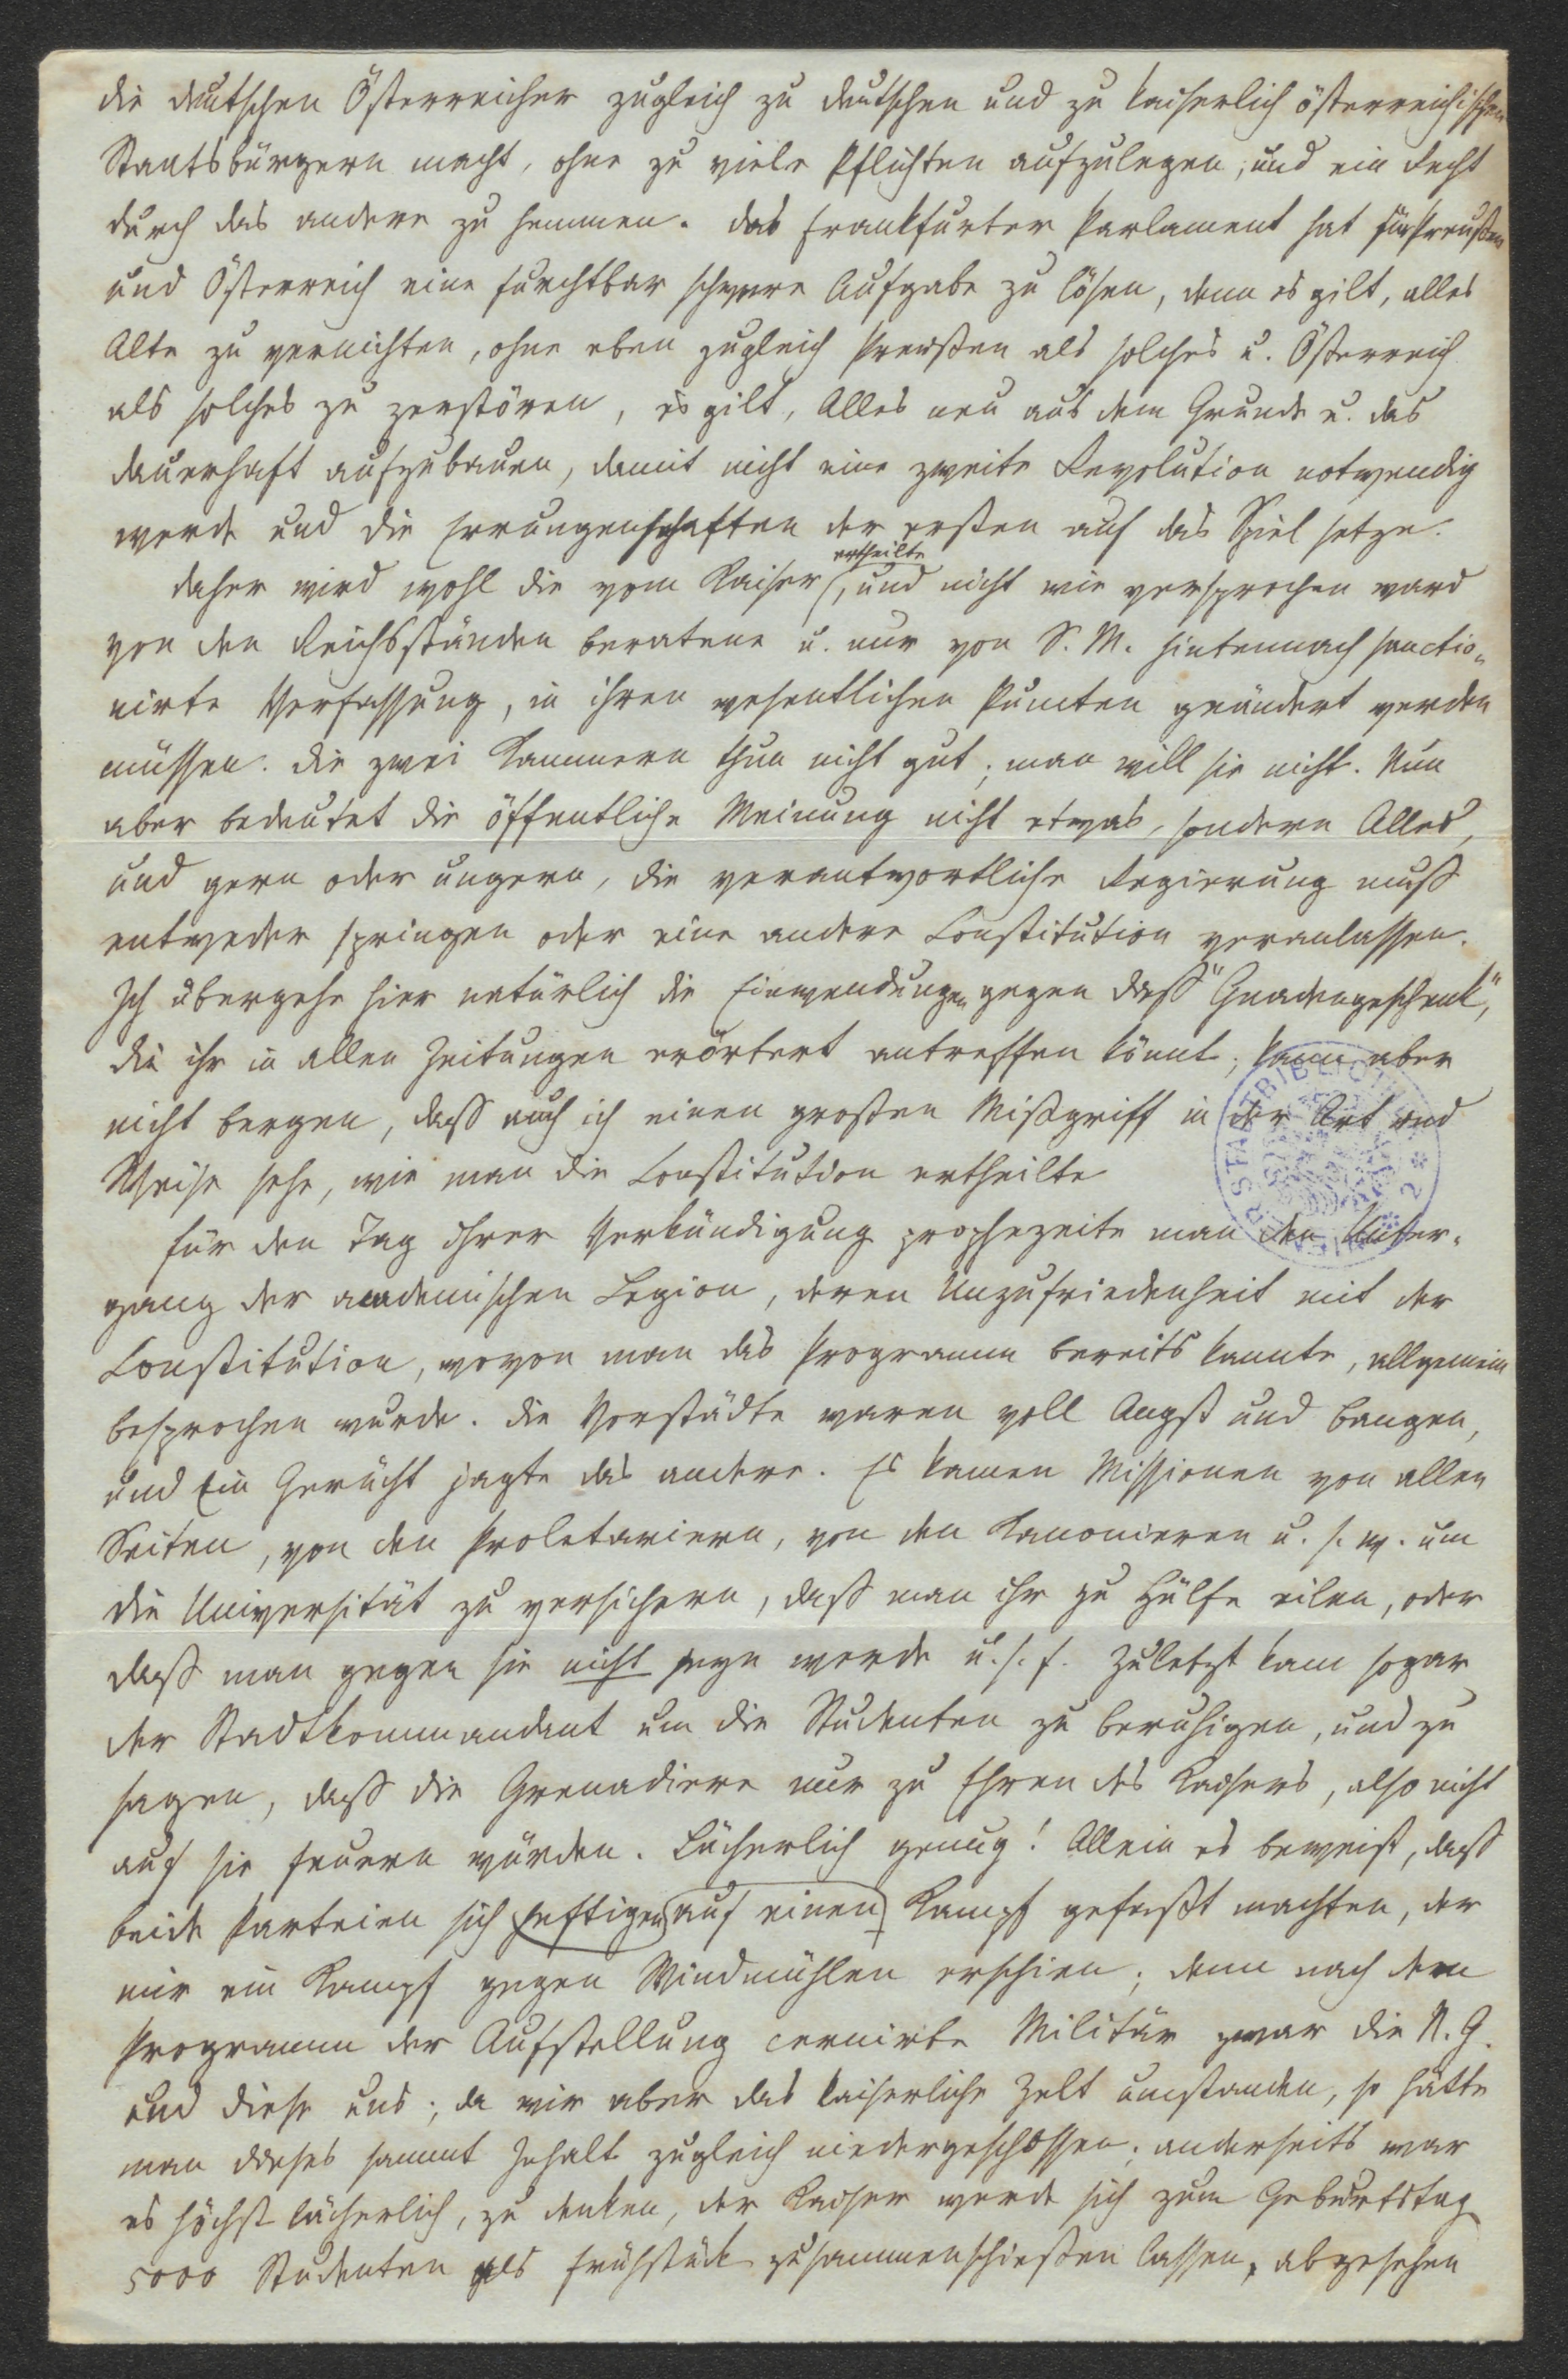 die deutschen Österreicher zugleich zu deutschen und zu kaiserlich österreichischen
Staatsbürgern macht, ohne zu viele Pflichten aufzulegen, und ein Recht
durch das andere zu hemmen. Das Frankfurter Parlament hat für Preußen
und Österreich eine furchtbar schwere Aufgabe zu lösen, denn es gilt, alles
Alte zu vernichten, ohne eben zugleich Preußen als solches u. Österreich
als solches zu zerstören, es gilt, Alles neu aus dem Grunde u. das
dauerhaft aufzubauen, damit nicht eine zweite Revolution notwendig
werde und die Errungenschaften der ersten auf das Spiel setze.
Daher wird wohl die vom Kaiser ertheilte, und nicht wie versprochen ward
von den Reichsständen beratene u. nur von S. M. hintennach sanctio-
nirte Verfassung, in ihren wesentlichen Puncten geändert werden
müssen. Die zwei Kammern thun nicht gut; man will sie nicht. Nun
aber bedeutet die öffentliche Meinung nicht etwas, sondern Alles,
und gern oder ungern, die verantwortliche Regierung muß
entweder springen oder eine andere Constitution veranlassen.
Ich übergehe hier natürlich die Einwendungen gegen dieß "Gnadengeschenk",
die ihr in allen Zeitungen erörtert antreffen könnt; kann aber
nicht bergen, daß auch ich einen großen Mißgriff in der Art und
Weise sehe, wie man die Constitution ertheilte
Für den Tag ihrer Verkündigung prophezeite man den Unter-
gang der academischen Legion, deren Unzufriedenheit mit der
Constitution, wovon man das Programm bereits kannte, allgemein
besprochen wurde. Die Vorstädte waren voll Angst und Bangen,
und Ein Gerücht jagte das andere. Es kamen Missionen von allen
Seiten, von den Proletariern, von den Kanonieren u. s. w. um
die Universität zu versichern, daß man ihr zu Hülfe eilen, oder
daß man gegen sie nicht seyn werde u. s. f. Zuletzt kam sogar
der Stadtkommandant um die Studenten zu beruhigen, und zu
sagen, daß die Grenadiere nur zu Ehren des Kaisers, also nicht
auf sie feuern würden. Lächerlich genug! Allein es beweist, daß
beide Parteien sich heftigen auf einen Kampf gefaßt machten, der
mir ein Kampf gegen Windmühlen erschien; denn nach dem
Programm der Aufstellung cernirte Militär zwar die N. G.
und diese uns; da wir aber das kaiserliche Zelt umstanden, so hätte
man dieses sammt Inhalt zugleich niedergeschossen; anderseits war
es höchst lächerlich, zu denken, der Kaiser werde sich zum Geburtstag
5000 Studenten als Frühstück zusammenschießen lassen, abgesehen